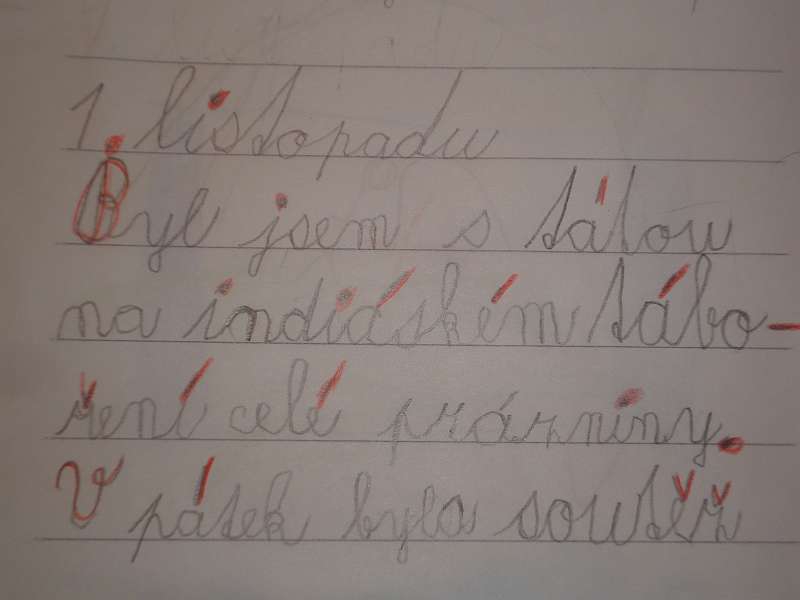 1. listopadu
Byl jsem s tátou
na indiáském tábo-
ření celé prázniny.
V pátek byla soutěž